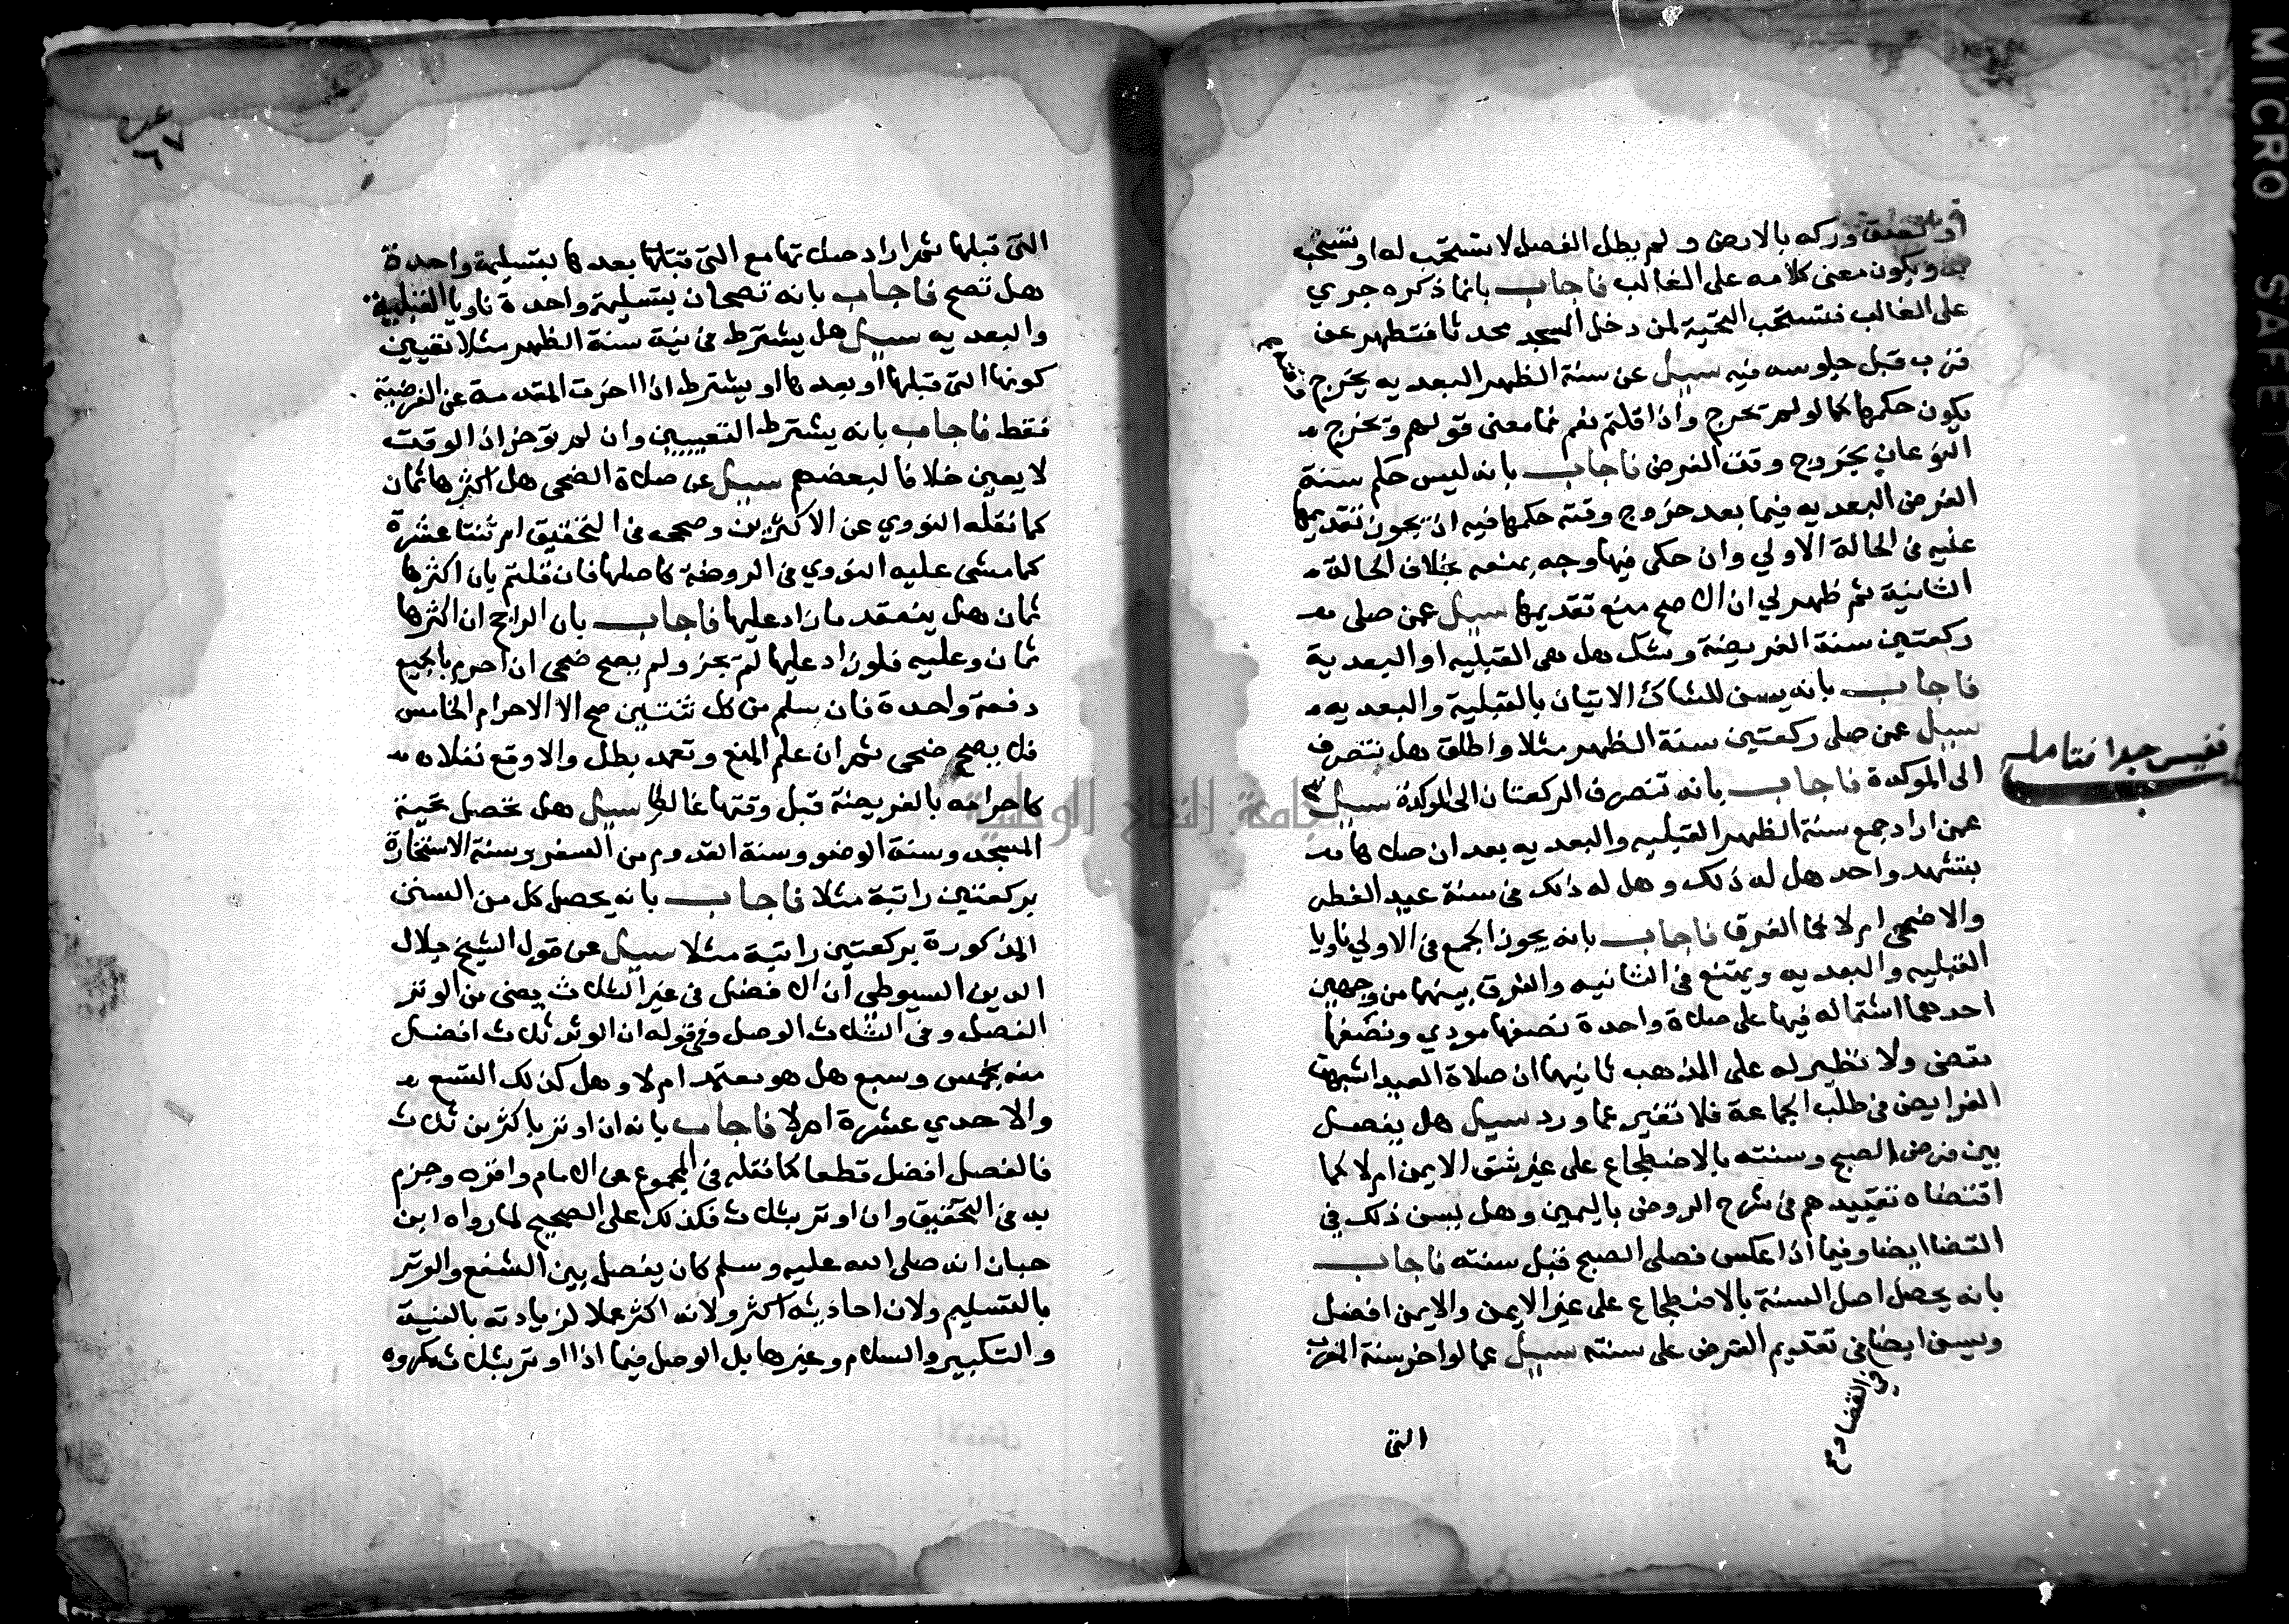 او تحقق وركه بالارض و لم يطل الفصل لا تستحب له او تستحب
به ويكون معنى كلامه على الغالب فاجاب بانما ذكره جري
على الغالب فتستحب التحية لمن دخل المسجد محدثا فتطهر عن
قرب قبل جلوسه فيه سيل عن سنة الظهر البعديه يخرج
يكون حكمها كما لو لم تخرج واذا قلتم نعم فما معنى قولهم وتخرج
النوعان بخروج وقت الفرض فاجاب بانه ليس حكم سنة
الفرض البعديه فيما بعد خروج وقته حكمها فيه اذ يجوز تقديمها
عليه في الحالة الاولي وان حكى فيها وجه بمنعه بخلاف الحالة
الثانية ثم ظهر لي ان الاصح منع تقديمها سيل عمن صلى
ركعتين سنة الفريضة وشك هل هي القبليه او البعدية
فاجاب بانه يسن للشاك الاتيان بالقبلية والبعديه
سيل عمن صلى ركعتين سنة الظهر مثلا واطلق هل تنصرف
نفيس جدا فتامله
الى الموكدة فاجاب بانه تنصرف الركعتان الى الموكدة سيل
عمن اراد جمع سنة الظهر القبليه والبعديه بعد ان صلاها
بتشهد واحد هل له ذلك و هل له ذلك في سنة عيد الفطر
والاضحى ام لا فما الفرق فاجاب بانه يجوز الجمع في الاولي ناويا
القبليه والبعديه ويمتنع في الثانيه والفرق بينهما من وجهين
احدهما اشتماله فيها على صلاة واحدة نصفها مودي ونصفها
مقضى ولا نظير له على المذهب ثانيهما ان صلاة العيد اشبهت
الفرايض في طلب الجماعة فلا تغير عما ورد سيل هل يفصل
بين فرض الصبح وسنته بالاضطجاع على غير شق الايمن ام لا كما
اقتضاه تقييدهم في شرح الروض باليمين وهل يسن ذلك في
القضا ايضا وفيما اذا عكس فصلى الصبح قبل سنته فاجاب
بانه يحصل اصل السنة بالاضطجاع على غير الايمن والايمن افضل
ويسن ايضا في تقديم الفرض على سنته سيل عما لو اخر سنة المغرب
في القضا و
التي
التي قبلها ثم اراد صلاتها مع التي قبلها بعدها بتسليمة واحدة
هل تصح فاجاب بانه تصحان بتسليمة واحدة ناويا القبلية
والبعديه سيل هل يشترط في نية سنة الظهر مثلا تعيين
كونها التي قبلها او بعدها او يشترط اذا اخرت المقدمة عن الفرضية
فقط فاجاب بانه يشترط التعيين وان لم توخر اذ الوقت
لا يعين خلافا لبعضهم سيل عن صلاة الضحى هل اكثرها ثمان
كما نقله النووي عن الاكثرين وصححه في التحقيق ام ثنتا عشرة
كما مشى عليه النووي في الروضة كاصلها فان قلتم بان اكثرها
ثمان هل ينعقد ما زاد عليها فاجاب بان الراجح ان اكثرها
ثمان وعليه فلو زاد عليها لم يجز ولم يصح ضحى ان احرم بالجميع
دفعة واحدة فان سلم من كل ثنتين صح الا الاحرام الخامس
فلا يصح ضحى ثم ان علم المنع وتعمد بطل والا وقع نفلا
كاحرامه بالفريضة قبل وقتها غالطا سيل هل تحصل تحية
المسجد وسنة الوضو وسنة القدوم من السفر وسنة الاستخارة
بركعتين راتبة مثلا فاجاب بانه يحصل كل من السنن
المذكورة بركعتين راتبة مثلا سيل عن قول الشيخ جلال
الدين السيوطي ان الافضل في غير الثلاث يعني من الوتر
الفصل و في الثلاث الوصل وفي قوله ان الوتر ثلاث افضل
منه بخمس وسبع هل هو معتمد ام لا وهل كذلك التسع
والاحدي عشرة ام لا فاجاب بانه ان اوتر باكثر من ثلاث
فالفصل افضل قطعا كما نقله في المجموع عن الامام واقره وجزم
به في التحقيق وان اوتر بثلاث فكذلك على الصحيح لما رواه ابن
حبان انه صلى الله عليه وسلم كان يفصل بين الشفع والوتر
بالتسليم ولان احاديثه اكثر ولانه اكثر عملا لزيادته بالنية
والتكبير والسلام وغيرها بل الوصل فيما اذا اوتر بثلاث مكروه
جامعة النجاح الوطنية
MICRO SAFETY